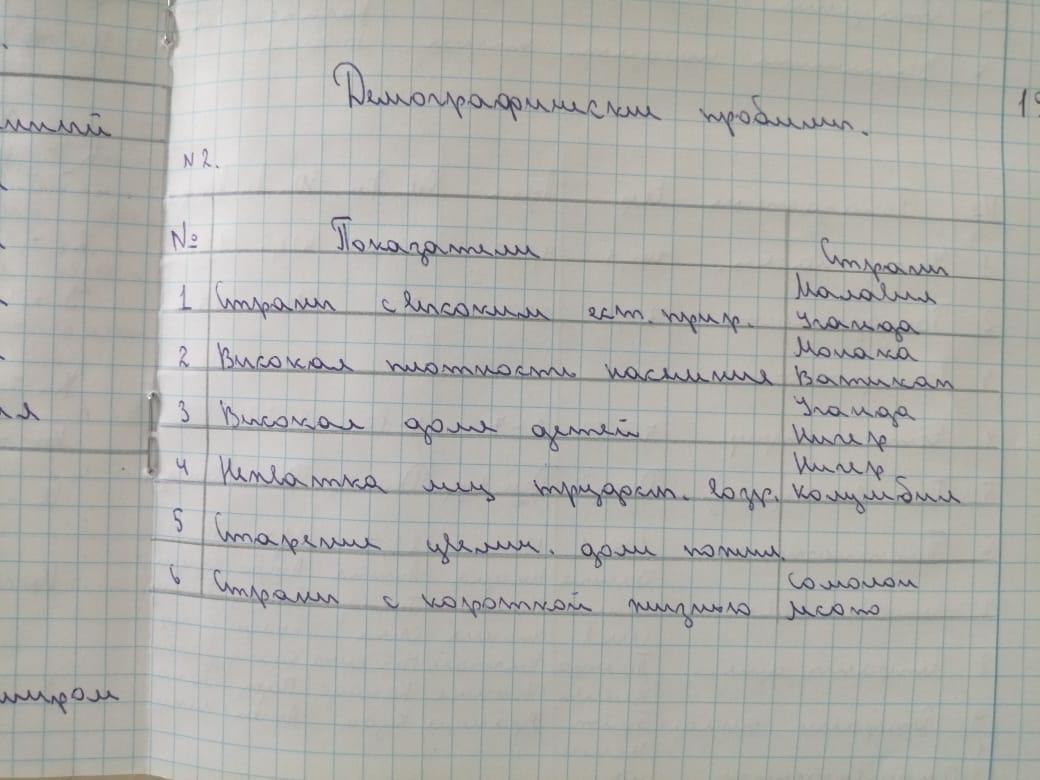 нный
шром
19
Демографические проблемы.
N2.
№ Показатели Страны
1 Страны с высоким ест. прир. Малавия Уганда
2 Високая плотность населения Монака Ватикан
3 Високая доля детей Уганда Нигер
4 Нехватка лиц трудосп. возр. Нигер Колумбия
5 Старение увелич. доли пожил.
6 Страны с короткой жизнью Сомолои Мсото